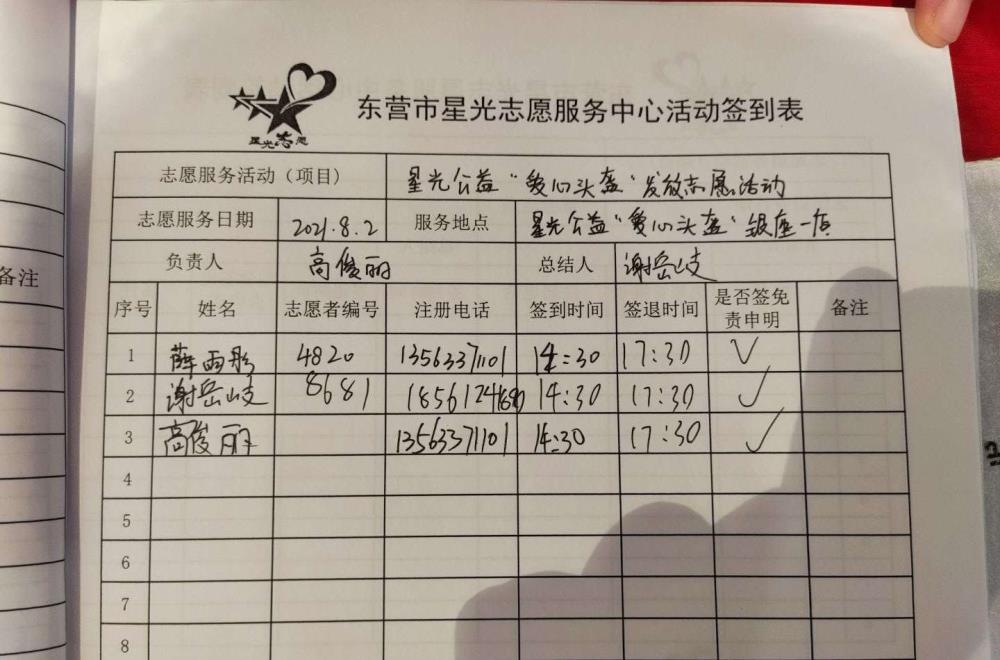 星光志愿
东营市星光志愿服务中心活动签到表
志愿服务活动（项目） 星光公益“爱心头盔”发放志愿活动
志愿服务日期 2021.8.2 服务地点 星光公益“爱心头盔”银座一店
备注
负责人 高俊丽 总结人 谢岳岐
序号 姓名 志愿者编号 注册电话 签到时间 签退时间 是否签免责申明 备注
1 薛雨彤 4820 13563371101 14:30 17:30 ✓
2 谢岳岐 8681 14:30 17:30 ✓
3 高俊丽 13563371101 14:30 17:30 ✓
4
5
6
7
8